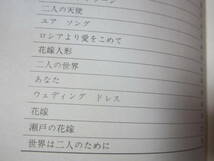 二人の天使
ユア ソング
ロシアより愛をこめて
花嫁人形
二人の世界
あなた
ウェディング ドレス
花嫁
瀬戸の花嫁
世界は二人のために